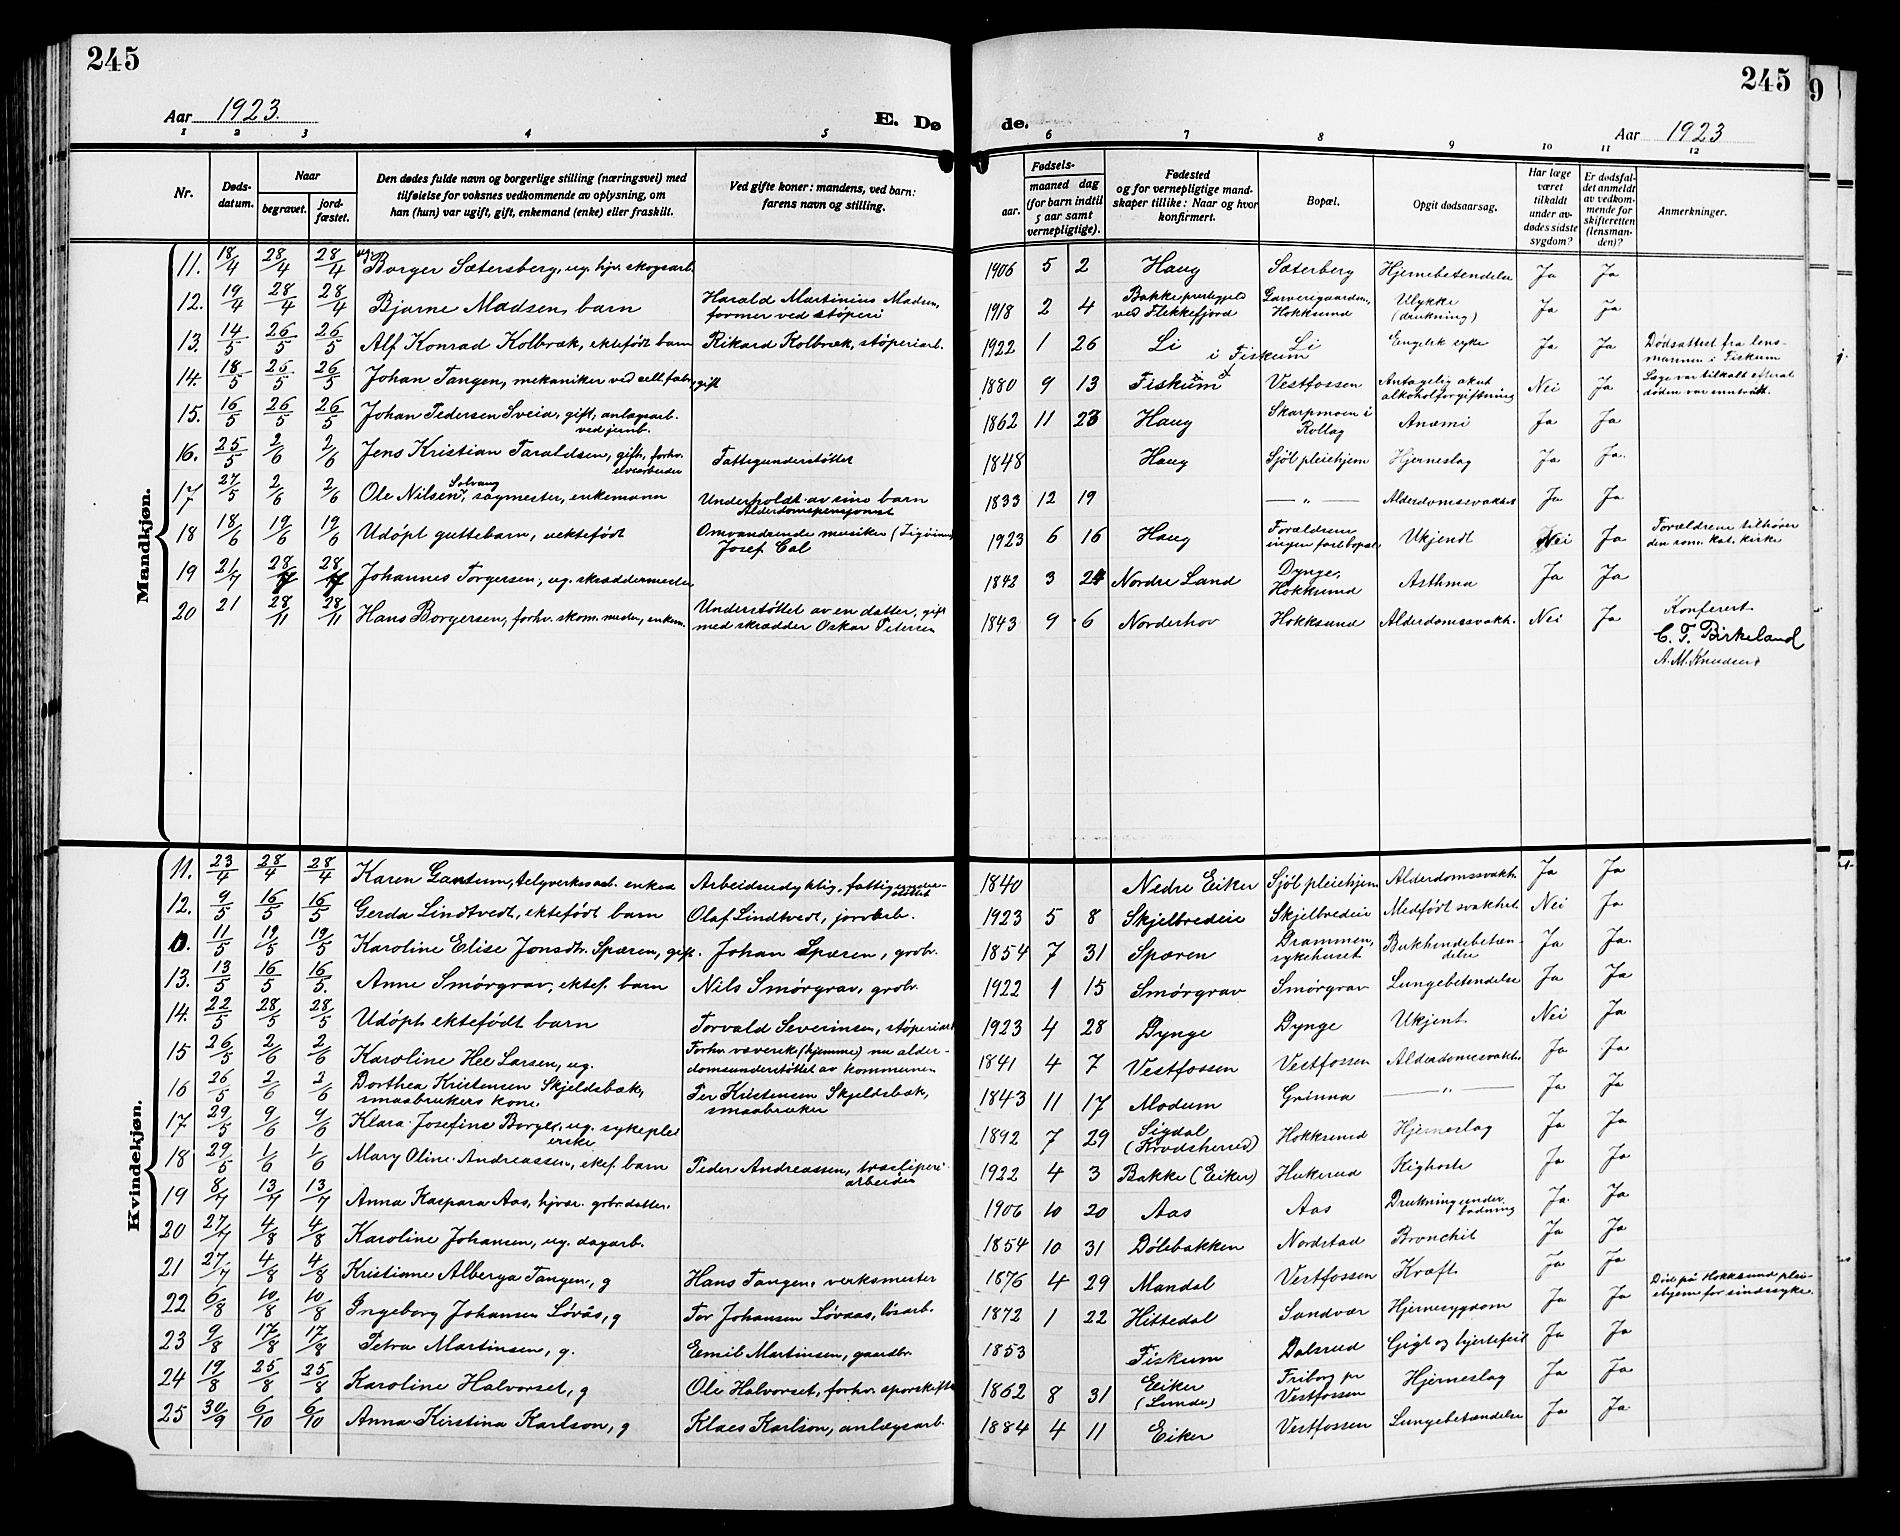 245
245
Aar 1923.
E. Dø
de.
Aar 1923
1 2 3 4 5 6 7 8 9 10 11 12
Nr.
Døds-
datum.
Naar
begravet.
jord-
fæstet.
Den dødes fulde navn og borgerlige stilling (næringsvei) med
tilføielse for voksnes vedkommende av oplysning, om
han (hun) var ugift, gift, enkemand (enke) eller fraskilt.
Ved gifte koner: mandens, ved barn:
farens navn og stilling.
Fødsels-
aar. maaned dag
(for barn indtil
5 aar samt
vernepligtige).
Fødested
og for vernepligtige mand-
skaper tillike: Naar og hvor
konfirmert.
Bopæl.
Opgit dødsaarsag.
Har læge
været
tilkaldt
under av-
dødes sidste
sygdom?
Er dødsfal-
det anmeldt
av vedkom-
mende for
skifteretten
(lensman-
den)?
Anmerkninger.
Mandkjøn.
11. 18/4 28/4 28/4 Borger Sætersberg, ug. hjv. skogsarb. 1906 5 2 Haug Sæterberg Hjernebetendelse Ja Ja
12. 19/4 28/4 28/4 Bjarne Madsen, barn Harald Martinius Madsen, 1918 2 4 Bakke prestegjeld Garverigaarden, Ulykke Ja Ja
former ved støperi ved Flekkefjord Hokksund (drukning)
13. 14/5 26/5 26/5 Alf Konrad Kolbræk, ektefødt barn Rikard Kolbræk, støperiarb. 1922 1 26 Li i Fiskum Li Engelsk syke Ja Ja Dødsattest fra lens-
mannen i Fiskum
14. 18/5 26/5 26/5 Johan Tangen, mekaniker ved cell.fabr., gift 1880 9 13 Fiskum Vestfossen Antagelig akut Nei Ja Læge var tilkalt efterat
alkoholforgiftning døden var inntrått.
15. 16/5 26/5 26/5 Johan Pedersen Sveia, gift, anlægsarb. 1862 11 23 Haug Skarpmoen i Anæmi Ja Ja
ved jernb. Rollag
16. 25/5 2/6 2/6 Jens Kristian Taraldsen, gift, forhv. Fattigunderstøttet 1848 Haug Sjøl pleiehjem Hjerneslag Ja Ja.
elvearbeider
17 27/5 2/6 2/6 Ole Nilsen, Solvang sagmester, enkemann Underholdt av sine barn 1833 12 19 — „ — Alderdomssvakhet Ja Ja
Alderdomspensjonist
18 18/6 19/6 19/6 Udöpt guttebarn, uektefödt Omvandrende musiker (Zigöiner) 1923 6 16 Haug Forældrene Ukjendt Nei Ja Forældrene tilhører
Josef Cal ingen fast bopæl den rom. kat. kirke
19 21/7 28/7 28/7 Johannes Torgersen, ug. skræddermester 1842 3 24 Nordre Land Dynge, Asthma Ja Ja
Hokksund
20 21 28/11 28/11 Hans Borgersen, forhv. skom. mester, enkem. Understöttet av en datter, gift 1843 9 6 Norderhov Hokksund Alderdomssvakh. Nei Ja Konferert
med skrædder Oskar Petersen C. F. Birkeland
A. M. Knudsen
Kvindekjøn.
11. 23/4 28/4 28/4 Karen Gantum, telgverksarb. enke Arbeidsudyktig, fattigunder- 1840 Nedre Eiker Sjöl pleiehjem Alderdomssvakh. Ja Ja
støttet
12. 9/5 16/5 16/5 Gerda Lindtvedt, ektefödt barn Olaf Lindtvedt, jordarb. 1923 5 8 Skjelbredeie Skjelbredeie Medfödt svakhet Nei Ja
0. 11/5 19/5 19/5 Karoline Elise Jonsdtr. Spæren, gift. Johan Spæren, grobr. 1854 7 31 Spæren Drammen, Bukhindebeten- Ja Ja.
sykehuset delse
13. 13/5 16/5 16/5 Anne Smørgrav, ektef. barn Nils Smörgrav, grobr. 1922 1 15 Smörgrav Smörgrav Lungebetendelse Ja Ja
14. 22/5 28/5 28/5 Udöpt ektefödt barn Torvald Severinsen, stöperiarb 1923 4 28 Dynge Dynge Ukjent Nei Ja
15 26/5 2/6 2/6 Karoline Hee Larsen, ug. Forhv. væverske (hjemme) nu alder- 1841 4 7 Vestfossen Vestfossen Alderdomssvakh. Ja Ja
domsunderstöttet av kommunen
16 26/5 2/6 2/6 Dorthea Kristensen Skjeldsbæk, Per Kristensen Skjeldsbæk, 1843 11 17 Modum Grinna — „ — Ja Ja
smaabrukers kone. smaabruker
17 29/5 9/6 9/6 Klara Josefine Borger, ug. sykeplei 1892 7 29 Sigdal Hokksund Hjerneslag Ja Ja
erske (Krødsherred)
18 29/5 1/6 1/6 Mary Oline Andreassen, ekef. barn Peder Andreassen, træsliperi- 1922 4 3 Bakke (Eiker) Hukerud Kighoste Ja Ja
arbeider
19 8/7 13/7 13/7 Anna Kaspara Aas, hjvær. grobr.datter. 1906 10 20 Aas Aas Drukning under Ja. Ja
badning
20 27/7 4/8 4/8 Karoline Johansen, ug. dagarb. 1854 10 31 Dölebakken Nordstad Bronchit Ja Ja
21 27/7 4/8 4/8 Kristiane Alberga Tangen, g Hans Tangen, verksmester 1876 4 29 Mandal Vestfossen Kræft Ja Ja
22 6/8 10/8 10/8 Ingeborg Johansen Lövås, g Tor Johansen Lövaas, løsarb. 1872 1 22 Hittedal Sandvær Hjernesygdom Ja Ja Død på Hokksund plei-
ehjem for sindssyke.
23 9/8 17/8 17/8 Petra Martinsen, g. Emil Martinsen, gaardbr. 1853 Fiskum Dalsrud Gigt og hjertefeil Ja Ja
24 19/8 25/8 25/8 Karoline Halvorset, g Ole Halvorset, forhv. sporskifter 1862 8 31 Eiker Friborg pr Hjerneslag Ja Ja
(Lunde) Vestfossen
25 30/9 6/10 6/10 Anna Kirstina Karlson, g Klaes Karlson, anlægsarb. 1884 4 11 Eiker Vestfossen Lungebetændelse Ja Ja